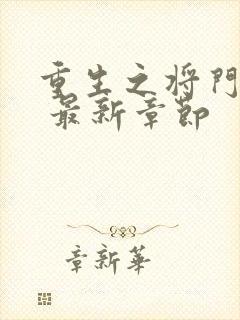 重生之将門
最新章節
章新華